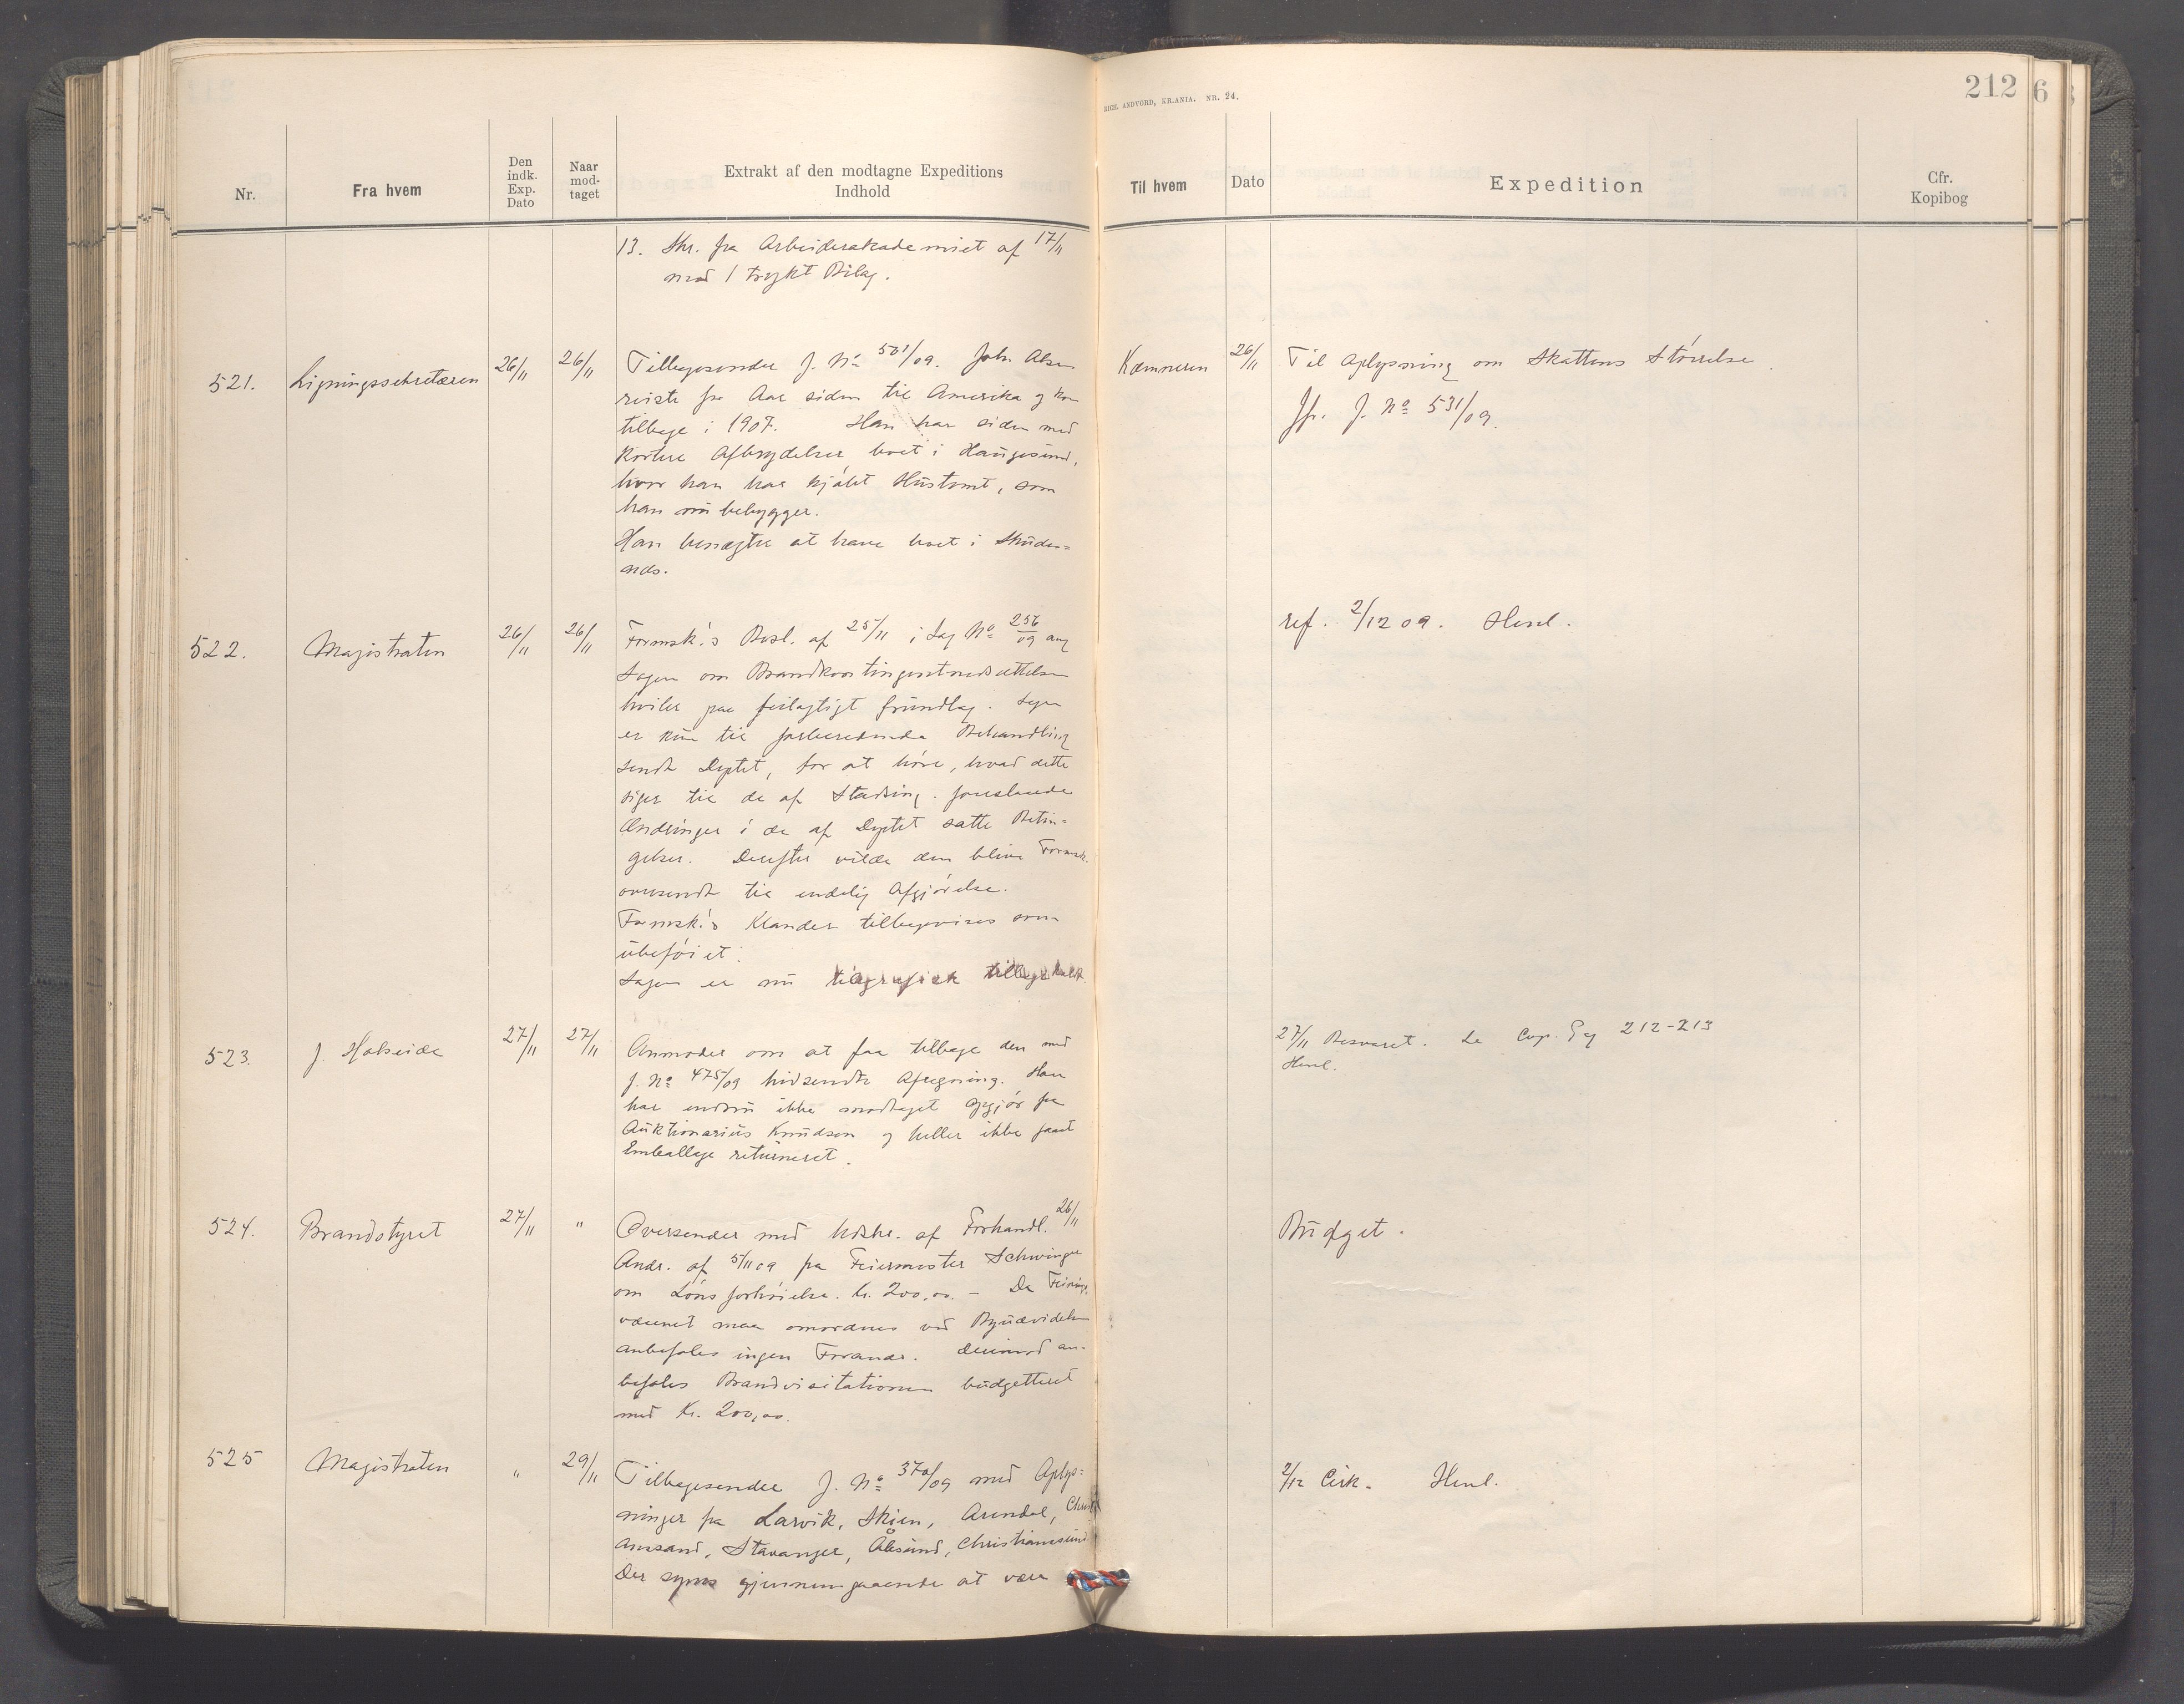 212
6
RICH. ANDVORD, KR.ANIA. NR. 24.
Nr.
Fra hvem
Den indk. Exp. Dato
Naar mod-taget
Extrakt af den modtagne Expeditions Indhold
Til hvem
Dato
Expedition
Cfr. Kopibog
13. Skr. fra Arbeiderakademiet af 17/11
med 1 trykt Bilag.
521. Ligningssekretæren 26/11 26/11 Tilbagesender J. No 501/09. John
reiste for Aar siden til Amerika og kom
tilbage i 1907. Han har siden med
kortere Afbrydelser boet i Haugesund,
hvor han har kjøbt Hustomt, som
han nu bebygger.
Han benægter at have boet i Skudes-
nes.
Kæmneren 26/11 Til Oplysning om Skattens Størrelse.
Jfr. J. No 531/09.
522. Magistraten 26/11 26/11 Formsk.'s Besl. af 25/11 i Sag No 256/09 ang
Sagen om
hviler paa feilagtigt Grundlag. Sagen
er kun til forberedende Behandling
sendt Deptet, for at høre, hvad dette
siger til de af foreslaaede
Ændringer i de af Deptet satte Betin-
gelser. Derefter vilde den blive Formsk.
oversendt til endelig Afgjørelse.
Formsk.'s Klander tilbagevises som
ubeføiet.
Sagen er nu telegrafisk tilbagekaldt.
ref. 2/12 09. Henl.
523. J. Halseide 27/11 27/11 Anmoder om at faa tilbage den med
J. No 475/09 hidsendte Afregning. Han
har endnu ikke modtaget Opgjør fra
Auktionarius Knudsen og heller ikke faaet
Emballage returneret.
27/11 Besvaret. Se Cop. Pag 212-213
Henl.
524. Brandstyret 27/11 " Oversender med Udskr. af Forhandl. 26/11
Andr. af 5/11 09 fra Feiermester Schwinger
om Lønsforhøielse. Kr. 200,00. – Da Feiings-
væsenet maa omordnes ved Byudvidelsen
anbefales ingen Forandr. Derimod an-
befales Brandvisitationen budgetteret
med Kr. 200,00.
Budget.
525 Magistraten " 29/11 Tilbagesender J. No 370/09 med Oplys-
ninger fra Larvik, Skien, Arendal, Christi-
anssand, Stavanger, Ålesund, Christianssund.
Der synes gjennemgaaende at være
2/12 Cirk. Henl.